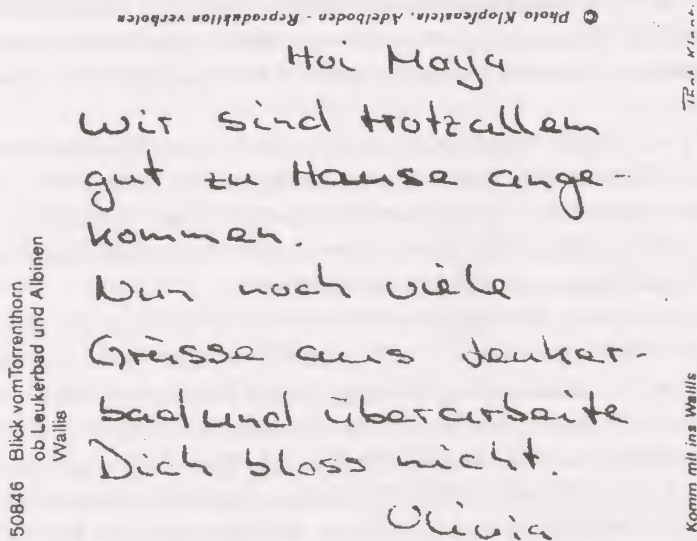 © Photo Klopfenstein, Adelboden - Reproduktion verboten
Hoi Maya
Wir sind trotzallem
gut zu Hause ange-
kommen.
Nun noch viele
Grüsse aus Leuker-
bad und überarbeite
Dich bloss nicht.
Olivia
50846 Blick vomTorrenthorn
ob Leukerbad und Albinen
Wallis
Komm mit ins Wallis